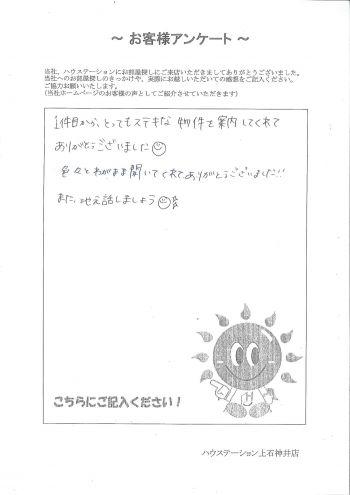 ～ お客様アンケート ～
当社、ハウステーションにお部屋探しにご来店いただきましてありがとうございました。
当社へのお部屋探しのきっかけや、実際にお越しいただいての感想をご記入ください。
ご協力お願いいたします。
(当社ホームページのお客様の声としてご紹介させていただきます)
1件目から、とってもステキな物件を案内してくれて
ありがとうございました
色々とわがまま聞いてくれてありがとうございました!!
また、地元話しましょう
こちらにご記入ください！
ハウステーション上石神井店